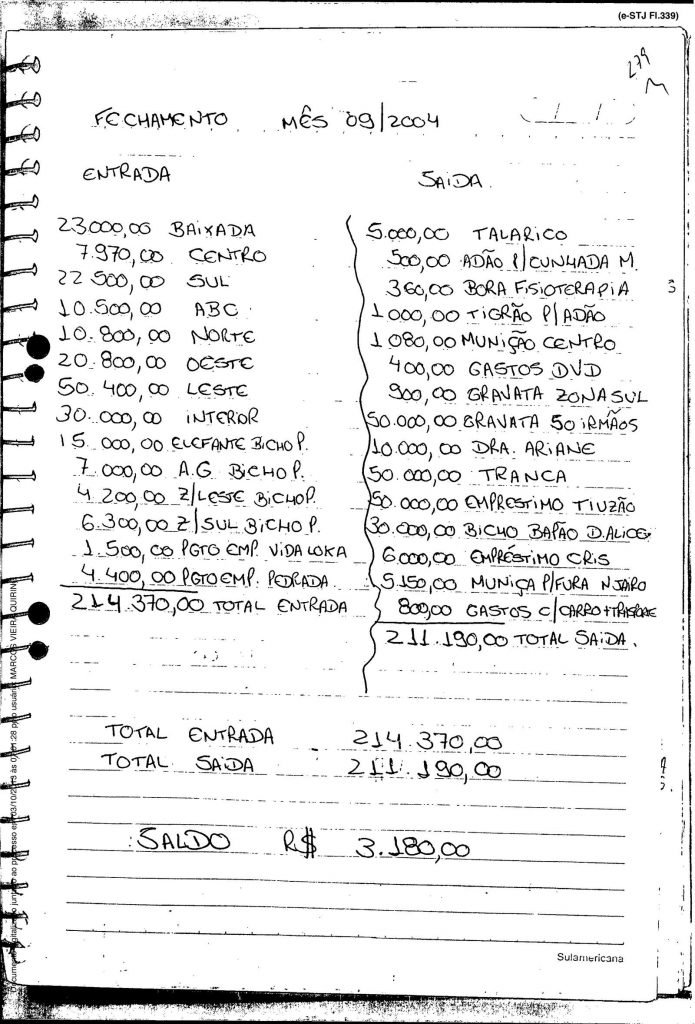 (e-STJ Fl.339)
279
FECHAMENTO MÊS 09/2004
ENTRADA
23.000,00 BAIXADA
7.970,00 CENTRO
22.500,00 SUL
10.500,00 ABC
10.800,00 NORTE
20.800,00 OESTE
50.400,00 LESTE
30.000,00 INTERIOR
15.000,00 ELEFANTE BICHO P.
7.000,00 A.G BICHO P.
4.200,00 Z/LESTE BICHO P.
6.300,00 Z/SUL BICHO P.
1.500,00 PGTO EMP. VIDA LOKA
4.400,00 PGTO EMP. PEDRADA
214.370,00 TOTAL ENTRADA
SAIDA
5.000,00 TALARICO
500,00 ADÃO P/CUNHADA M.
360,00 BORA FISIOTERAPIA
1.000,00 TIGRÃO P/ADÃO
1.080,00 MUNIÇÃO CENTRO
400,00 GASTOS DVD
900,00 GRAVATA ZONA SUL
50.000,00 GRAVATA 50 IRMÃOS
10.000,00 DRA. ARIANE
50.000,00 TRANCA
50.000,00 EMPRESTIMO TIUZÃO
30.000,00 BICHO BAPÃO D.ALICE
6.000,00 EMPRÉSTIMO CRIS
5.150,00 MUNIÇA P/FURA
800,00 GASTOS C/CARRO+
211.190,00 TOTAL SAIDA.
TOTAL ENTRADA 214.370,00
TOTAL SAIDA 211.190,00
SALDO R$ 3.180,00
Sulamericana